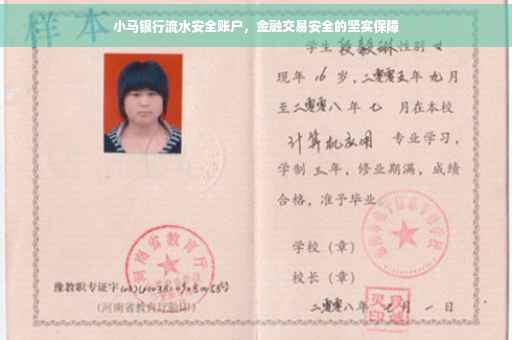 小马银行流水安全账户，金融交易安全的坚实保障
样本
学生 段毅琳 性别 女
现年 16 岁，二零零五年 九 月
至二零零八年 七 月在本校
计算机应用 专业学习，
学制 三 年，修业期满，成绩
合格，准予毕业
学校（章）
校长（章）
二零零八年 月 一 日
河南省教育厅
豫教职专证字
（河南省教育厅验印）